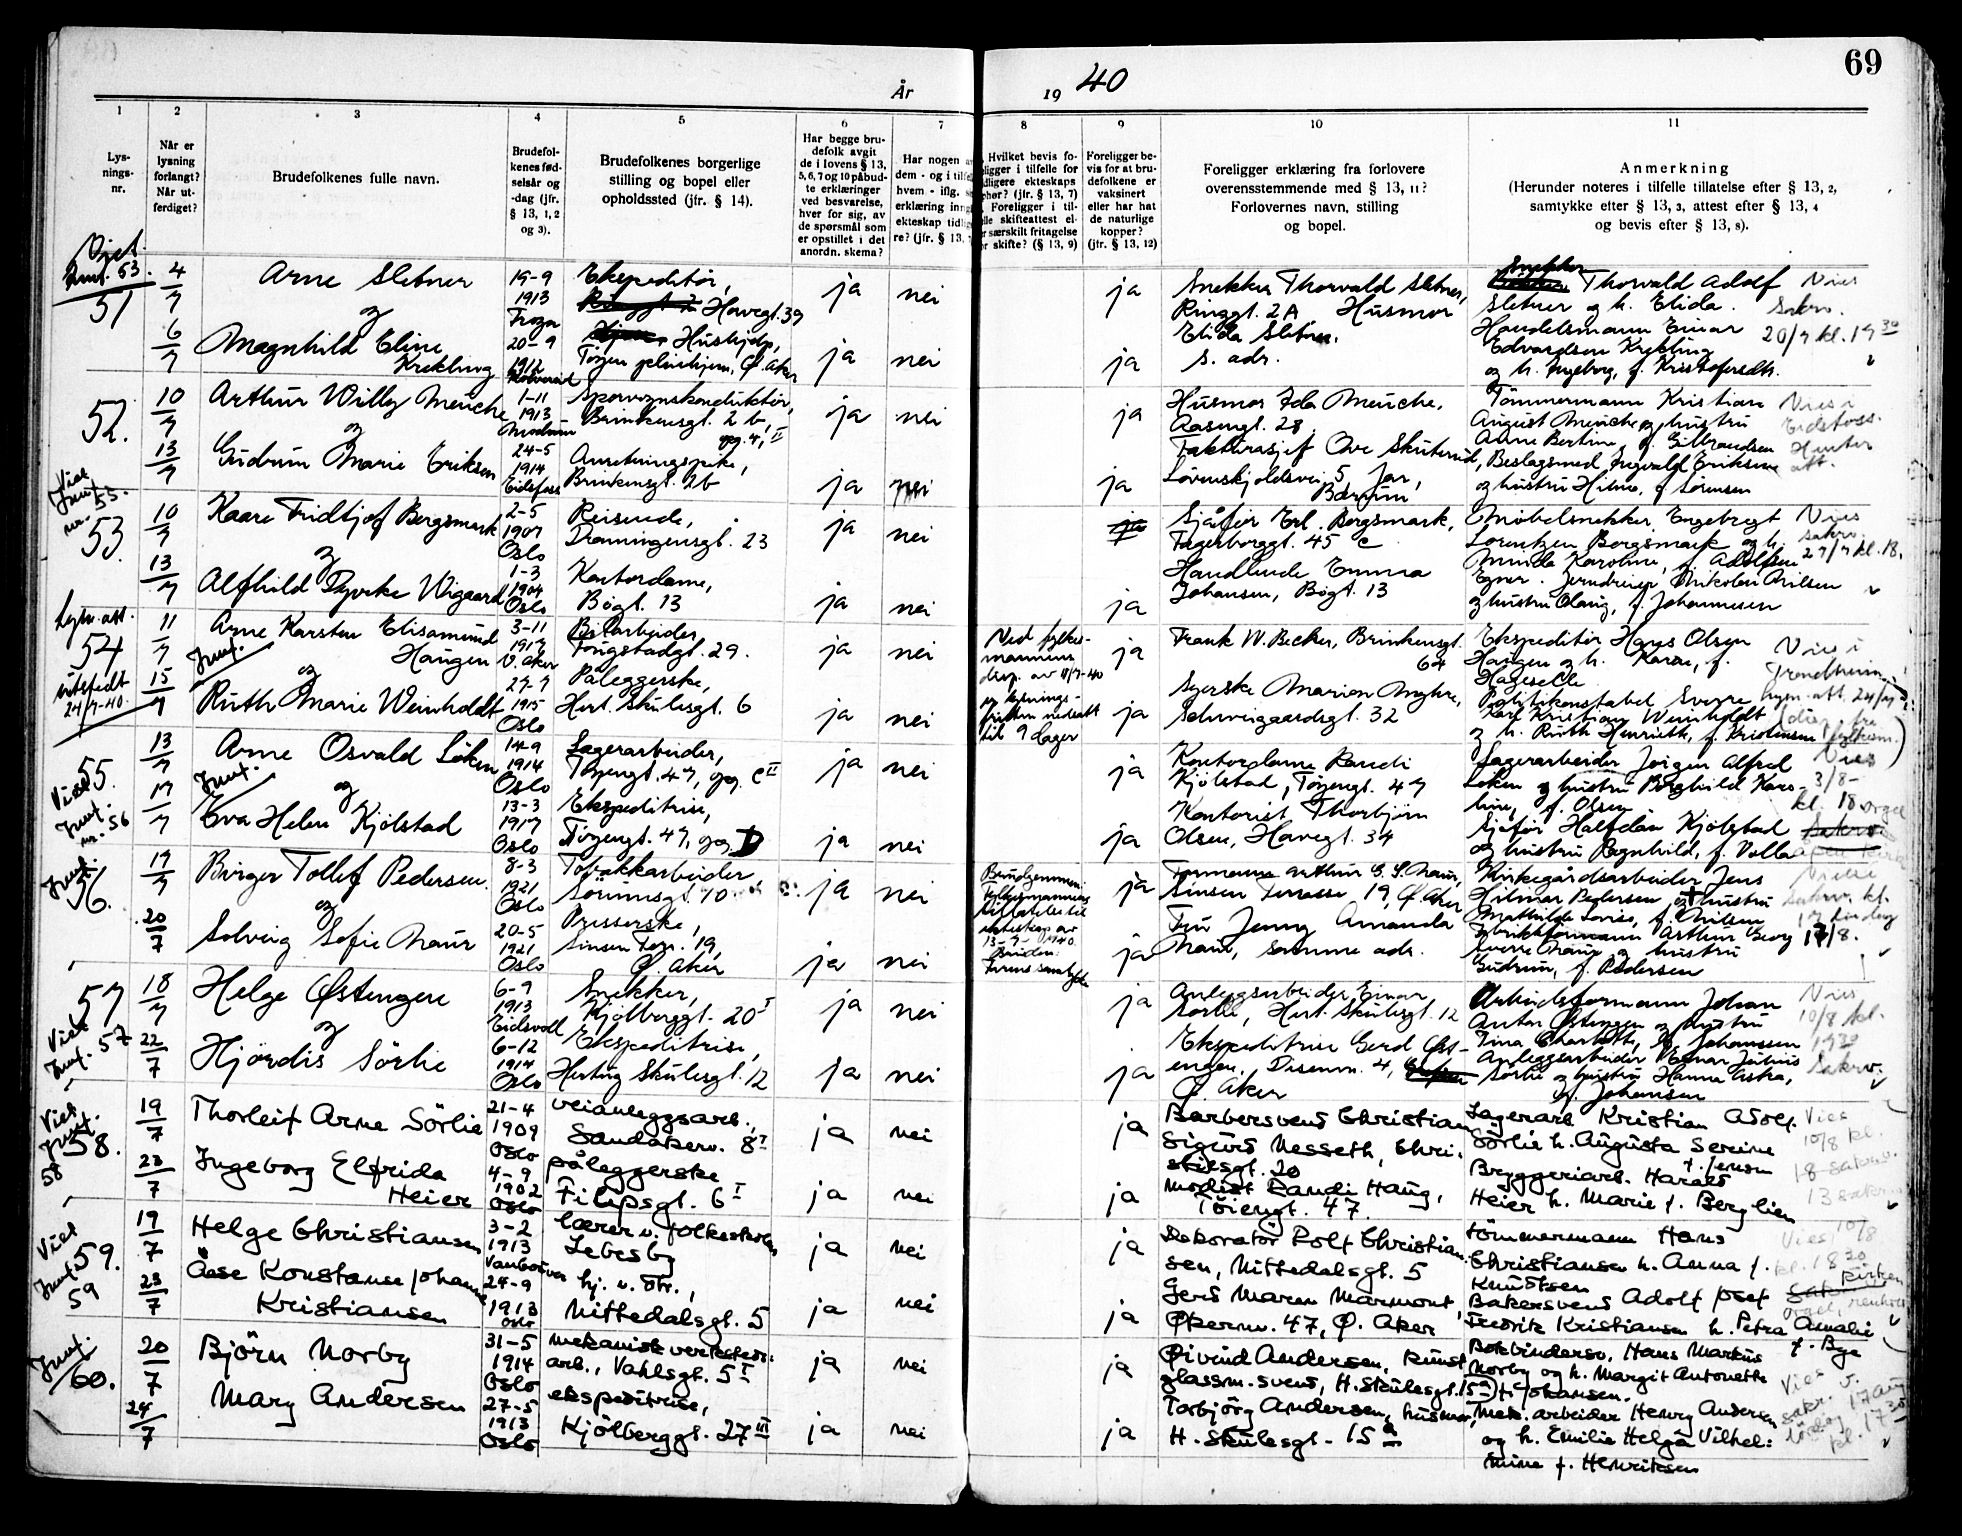 69
År 19 40
1 2 3 4 5 6 7 8 9 10 11
Lys-
nings-
nr.
Når er
lysning
forlangt?
Når ut-
ferdiget?
Brudefolkenes fulle navn.
Brudefol-
kenes fød-
selsår og
-dag (jfr.
§ 13, 1, 2
og 3).
Brudefolkenes borgerlige
stilling og bopel eller
opholdssted (jfr. § 14).
Har begge bru-
defolk avgit
de i lovens § 13,
5, 6, 7 og 10 påbud-
te erklæringer
ved besvarelse,
hver for sig, av
de spørsmål som
er opstillet i det
anordn. skema?
Har nogen
dem - og i
hvem - iflg.
erklæring
ekteskap
re? (jfr. § 13,
Hvilket bevis fo-
ligger i tilfelle for
ekteskaps
(jfr. § 13, 7)
Foreligger i til-
skifteattest el-
særskilt fritagelse
skifte? (§ 13, 9)
Foreligger be-
vis for at bru-
defolkene er
vaksinert
eller har hat
de naturlige
kopper?
(jfr. § 13, 12)
Foreligger erklæring fra forlovere
overensstemmende med § 13, 11?
Forlovernes navn, stilling
og bopel.
Anmerkning
(Herunder noteres i tilfelle tillatelse efter § 13, 2,
samtykke efter § 13, 3, attest efter § 13, 4
og bevis efter § 13, 8).
Viet
53.
51
4/7
Arne Sletner
og
19-9
1913
Ekspeditør,
Havegt. 39
ja nei
ja
Snekker Thorvald Sletner,
Ringgt. 2A Husmor
Elida Sletner.
s. adr.
Snekker
Thorvald Adolf
Sletner og h. Elida.
Vies
Sakr.
20/7 kl. 17 30
6/7
Magnhild Eline
Krekling
20-9
1912
Hushjelp,
Tøyen pleiehjem, Ø. Aker
ja nei
ja
Handelsmann Einar
Edvardsen Krekling
og h. Ingeborg, f. Kristofersdtr.
52.
10/7
Arthur Willy Menche
og
1-11
1913
Modum
Sporvognskonduktør,
Brinkensgt. 2 b,
opg. 4, II
ja nei
ja
Husmor Ida Menche,
Aasengt. 28
Tømmermann Kristian
August Menche og hustru
Anne Bertine, f. Gilbrandsen
Vies i
Eidsfoss.
Henter
att.
13/7
Gudrun Marie Eriksen
24-5
1914
Eidsfoss
Anretningspike,
Brinkensgt. 2b
ja nei
ja
Fakturasjef Ove Skuterud,
Løvenskjoldsvei 5 Jar,
Bærum
Beslagsmed Ingvald Eriksen
og hustru Hilma, f. Sørensen
Viet
Innf.
nr. 55.
53.
10/7
Kaare Fridtjof Bergsmark
og
2-5
1907
Oslo
Reisende,
Dronningensgt. 23
ja nei
ja
Sjåfør Erl. Bergsmark,
Fagerborggt. 45 c
Møbelsnekker Engebregt
Lorentzen Bergsmark og h.
Minda Karoline, f. Adolfsen
Vies
sakr.
27/7 kl. 18.
13/7
Alfhild Dyveke Wigaard
1-3
1904
Oslo
Kontordame,
Bøgt. 13
ja nei
ja
Handlende Emma
Johansen, Bøgt. 13
Egner. Jerndreier Nikolai Nilsen
og hustru Olaug, f. Johannesen
Lysn.att.
54
utstedt
24/7-40.
11/7
Innf.
Arne Karsten Elisamund
Haugen
og
3-11
1917
V. Aker
Bilarbeider
Tøngstadgt. 29.
ja nei
Ved fylkes-
mannens
disp. av 11/7-40
og lysnings-
fristen nedsatt
til 9 dager
ja
Frank W. Becker, Brinkensgt.
64
Ekspeditør Hans Olsen
Haugen og h. Karen, f.
Hagesetle
Vies i
Trondheim
lysn.att. 24/7
15/7
Ruth Marie Weinholdt
27-7
1915
Oslo
Påleggerske,
Hert. Skulesgt. 6
ja nei
ja
Syerske Marion Myhre,
Schweigaardsgt. 32
Politikonstabel Sverre
Karl Kristian Weinholdt
og h. Ruth Henriette, f. Kristensen
55.
Viet
Innf.
nr. 56
13/7
Arne Osvald Løken
Innf. og
14-9
1914
Oslo
Lagerarbeider,
Tøyengt. 47, opg. C II
ja nei
ja
Kontordame Randi
Kjølstad, Tøyengt. 47
Lagerarbeider Jørgen Alfred
Løken og hustru Borghild Karo-
line, f. Olsen
Vies
3/8-
kl. 18 orgel
17/7
Eva Helen Kjølstad
13-3
1917
Oslo
Ekspeditrise,
Tøyengt. 47, opg. D
ja nei
ja
Kontorist Thorbjørn
Olsen, Havegt. 34
Sjåfør Halfdan Kjølstad
og hustru Ragnhild, f. Volla
Innf.
56.
19/7
Birger Tollef Pedersen
og
8-3
1921
Oslo
Tobakkarbeider
Sørumsgt. 10
ja nei
Brudgommen
Fylkesmannens
tillatelse til
ekteskap av
13-7-1940.
Bruden:
ja
Formann Arthur G. S. Maur,
Sinsen Terrasse 19, Ø. Aker
Kirkegårdsarbeider Jens
Hilmar Pedersen og hustru
Mathilde Lovise, f. Nilsen
Sakrv. kl.
17 lørdag
17/8.
20/7
Solveig Sofie Maur
20-5
1921
Oslo
Presserske,
Sinsen Terr. 19,
Ø. Aker
ja nei
ja
Fru Jenny Amanda
Maur, samme adr.
Fabrikkformann Arthur Georg
Sverre Maur og hustru
Gudrun, f. Pedersen
57
Viet
Innf. 57
18/7
Helge Østengen
og
6-9
1913
Eidsvoll
Snekker,
Kjølberggt. 20 I
ja nei
ja
Anleggsarbeider Einar
Sørlie, Hert. Skulesgt. 12
Arbeidsformann Johan
Anton Østengen og hustru
Tina Charlotte, f. Johanssen
Vies
10/8 kl.
17 30
Sakrv.
22/7
Hjørdis Sørlie
6-12
1914
Oslo
Ekspeditrise,
Hertug Skulesgt. 12
ja nei
ja
Ekspeditrise Gerd Øst-
engen, Disenvn. 4,
Ø. Aker
Anleggsarbeider Einar Julius
Sørlie og hustru Hanna Astra,
f. Johansen
Viet
Innf.
58.
58
19/7
Thorleif Arne Sörlie
21-4
1909
Oslo
veianleggsarb.,
Sandakerv. 8 I
ja nei
ja
Barbersvend Christian
Sigurd Nesseth, Chri-
stiesgt. 20
Lagerarb. Kristian Adolf
Sörlie h. Augusta Serine
f. Jensen
Vies
10/8 kl.
18-sakrv.
23/7
Ingeborg Elfrida
Heier
4-9
1902
Oslo
påleggerske
Filipsgt. 6 I
ja nei
ja
Modist Randi Haug,
Töiengt. 47.
Bryggeriarb. Harald
Heier h. Marie f. Berglien
Viet
59.
Innf.
59
19/7
Helge Christiansen
3-2
1913
Vancouver
lærer v. folkeskolen
Lebesby
ja nei
ja
Dekoratør Rolf Christian-
sen, Nittedalsgt. 5
tömmermann Hans
Christiansen h. Anna f.
Knudtsen
Vies 10/8
kl. 18 30
Kirken
23/7
Åse Konstanse Johanne
Kristiansen
24-9
1913
Oslo
hj. v. Str.,
Nittedalsgt. 5
ja nei
ja
Gerd Maren Marmont,
Økernv. 47, Ø. Aker
Bakersvend Adolf Josef
Fredrik Kristiansen h. Petra Amalie
f. Bye
Innf.
60.
20/7
Björn Norby
31-5
1914
Oslo
mekanisk verksteds-
arb., Vahlsgt. 5 I
ja nei
ja
Øivind Andersen, kunst
glassm.svend, H. Skulesgt. 15 a
Bokbindersv. Hans Markus
Norby og h. Margit Antonette
f. Johansen.
Vies i
sakr.
lördag 17 aug
kl. 17 30
24/7
Mary Andersen
27-5
1913
Oslo
ekspeditrise,
Kjölberggt. 27 III
ja nei
ja
Torbjörg Andersen, husmor,
H. Skulesgt. 15 a
Mek. arbeider Henry Andersen
og h. Emilie Helga Vilhel-
mine f. Henriksen